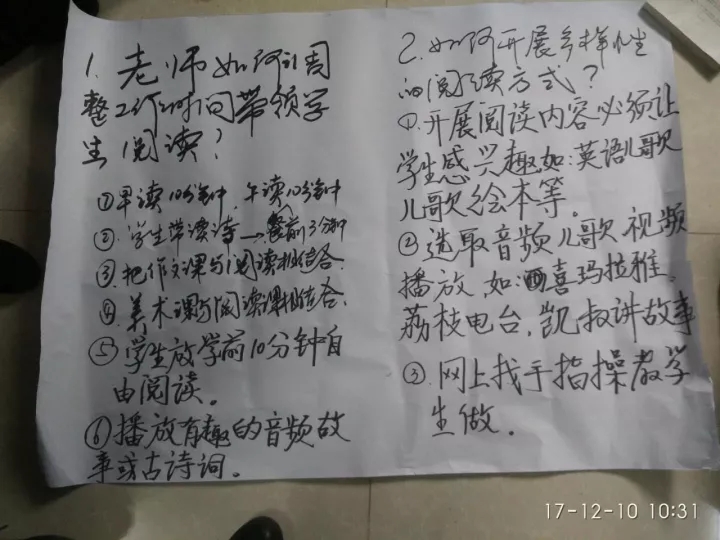 1. 老师如何调
整工作时间带领学
生阅读?
①早读10分钟,午读10分钟
②学生带读诗→餐前3分钟
③把作文课与阅读相结合
④美术课与阅读课相结合,
⑤学生放学前10分钟自
由阅读。
⑥播放有趣的音频故
事或古诗词。
2.如何开展多样性
的阅读方式?
①开展阅读内容必须让
学生感兴趣如:英语儿歌
儿歌绘本等。
②选取音频儿歌视频
播放,如:喜玛拉雅、
荔枝电台,凯叔讲故事
③网上找手指操教学
生做。
17-12-10 10:31